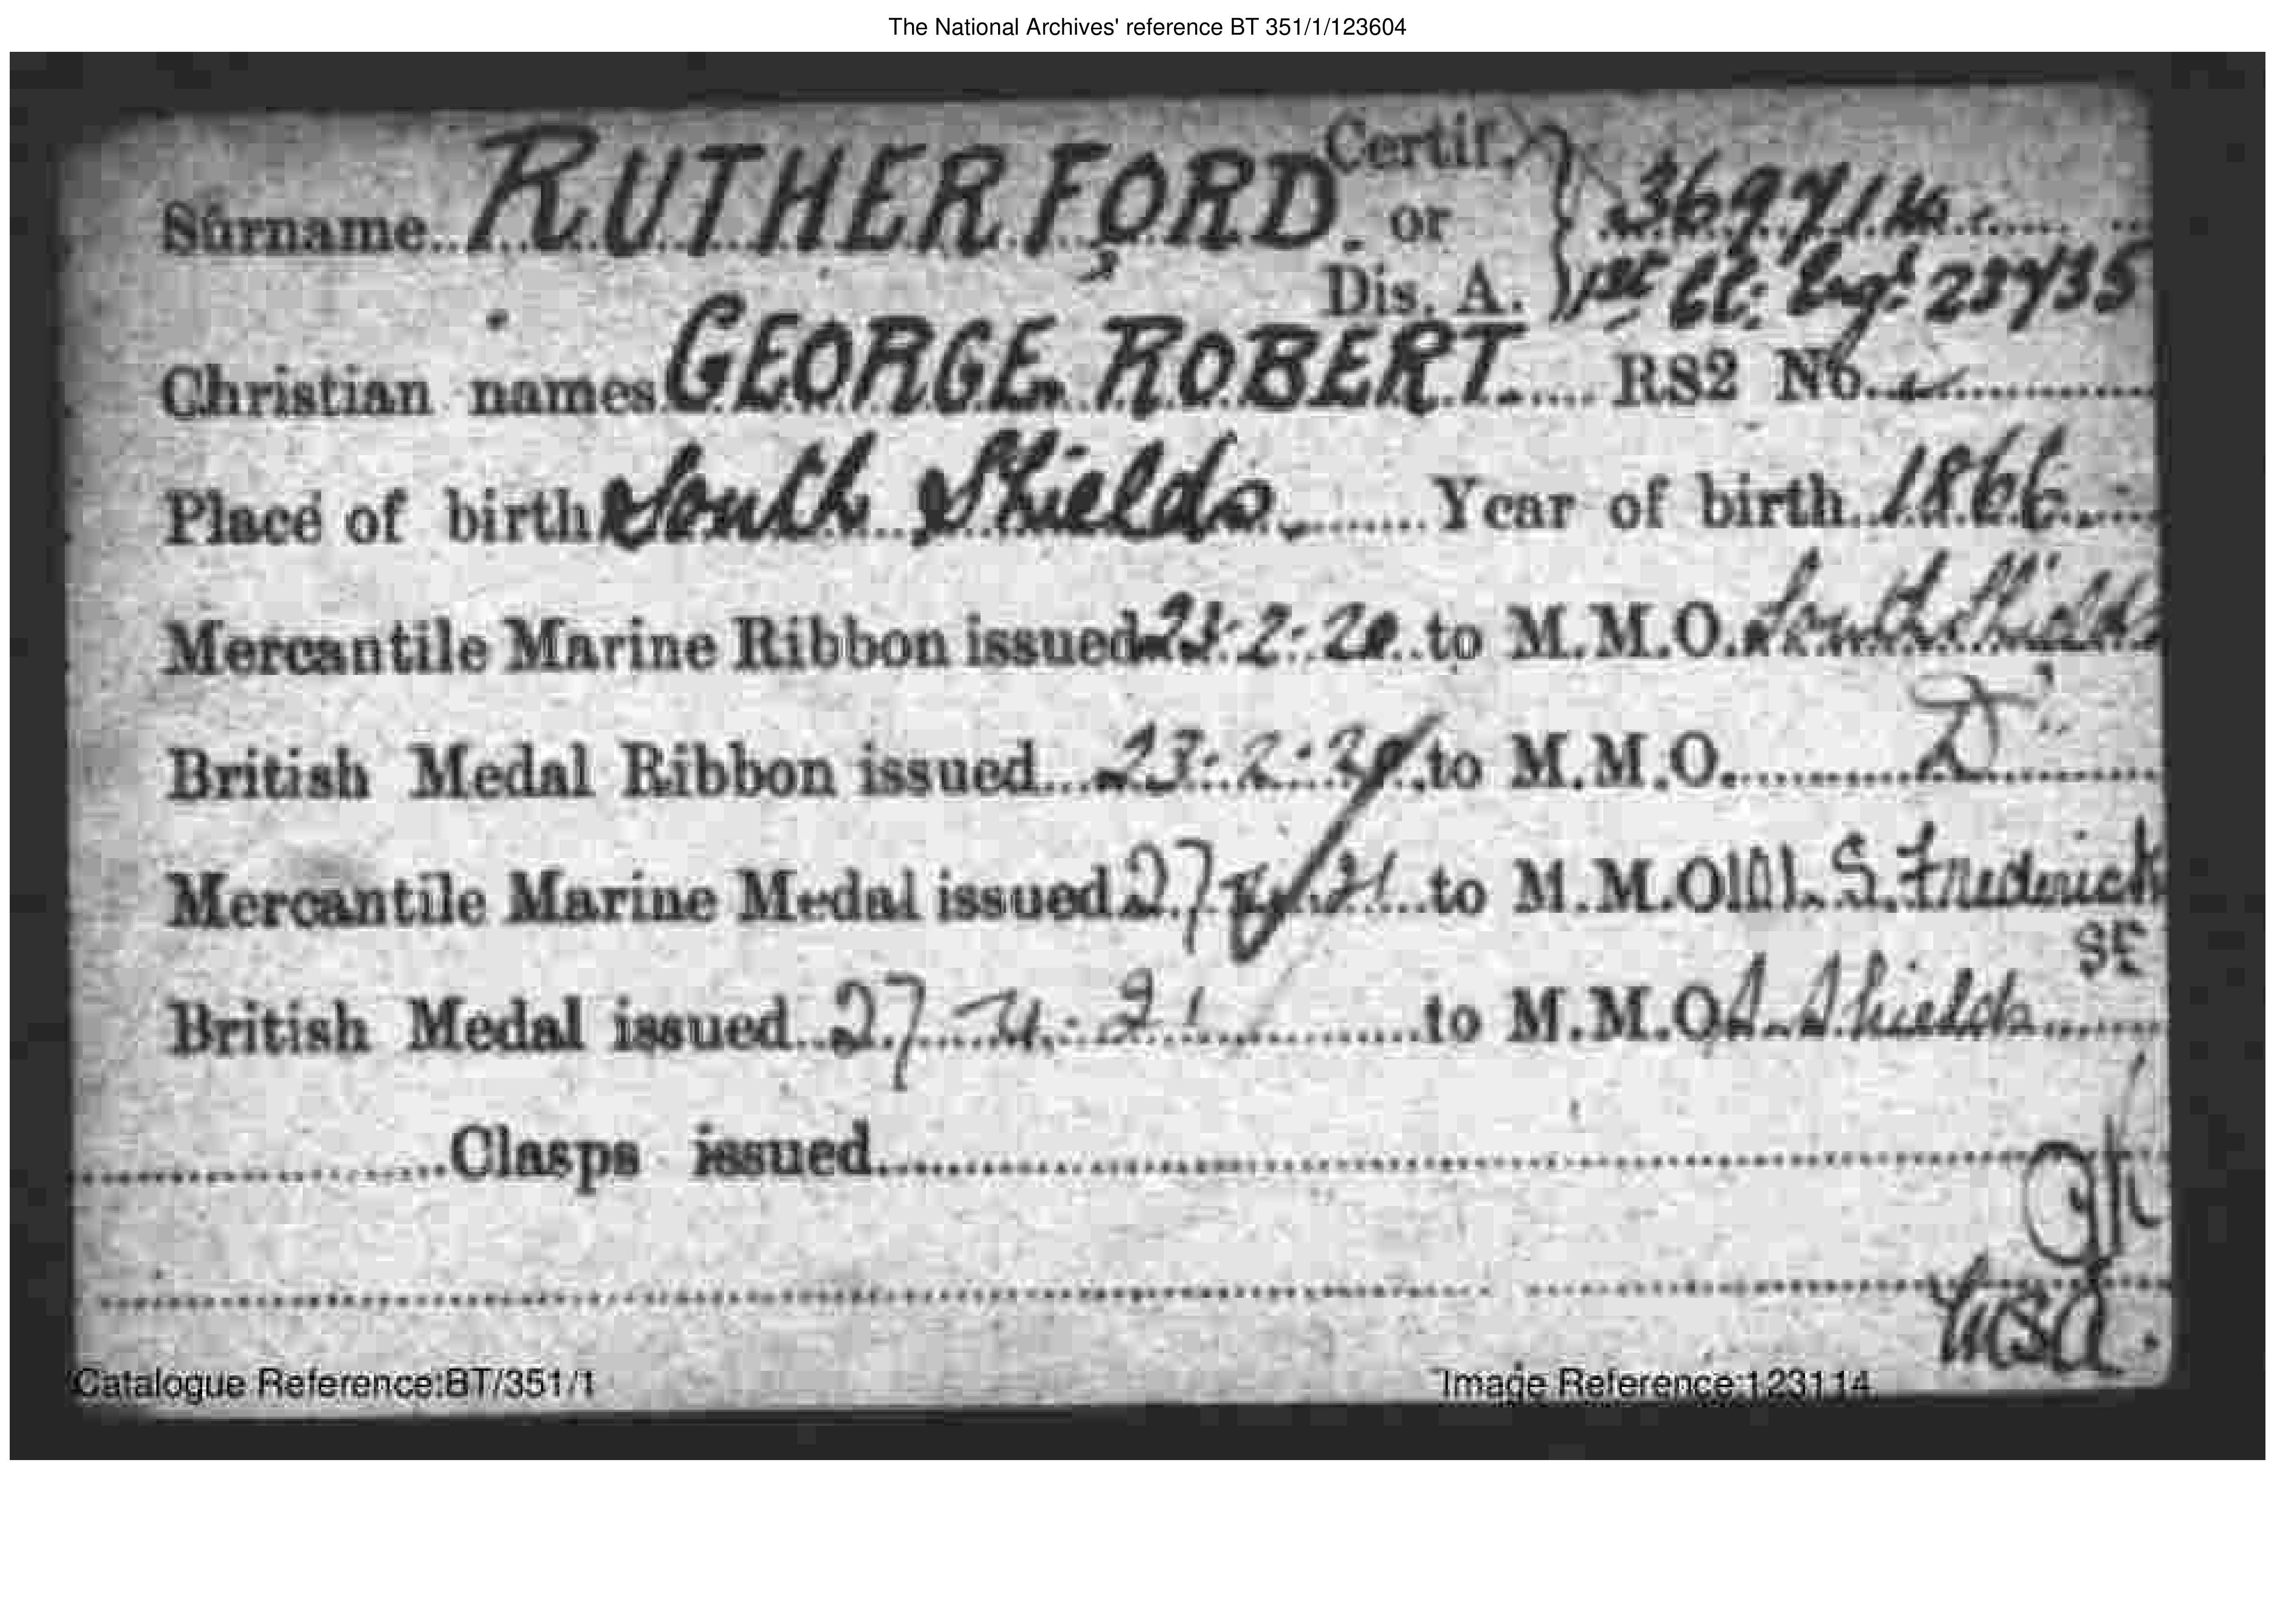 The National Archives' reference BT 351/1/123604
Surname RUTHERFORD Certif. or Dis. A.
1st Cl: Engr 23735
Christian names GEORGE ROBERT RS2 No.
Place of birth South Shields Year of birth 1866
Mercantile Marine Ribbon issued 23.2.20 to M.M.O. South Shields
British Medal Ribbon issued 23.2.20 to M.M.O.
Mercantile Marine Medal issued 27 21 to M.M.O. S. Frederick
SE
British Medal issued 27 4. 21 to M.M.O. S. Shields
Clasps issued
Catalogue Reference:BT/351/1 Image Reference:123114